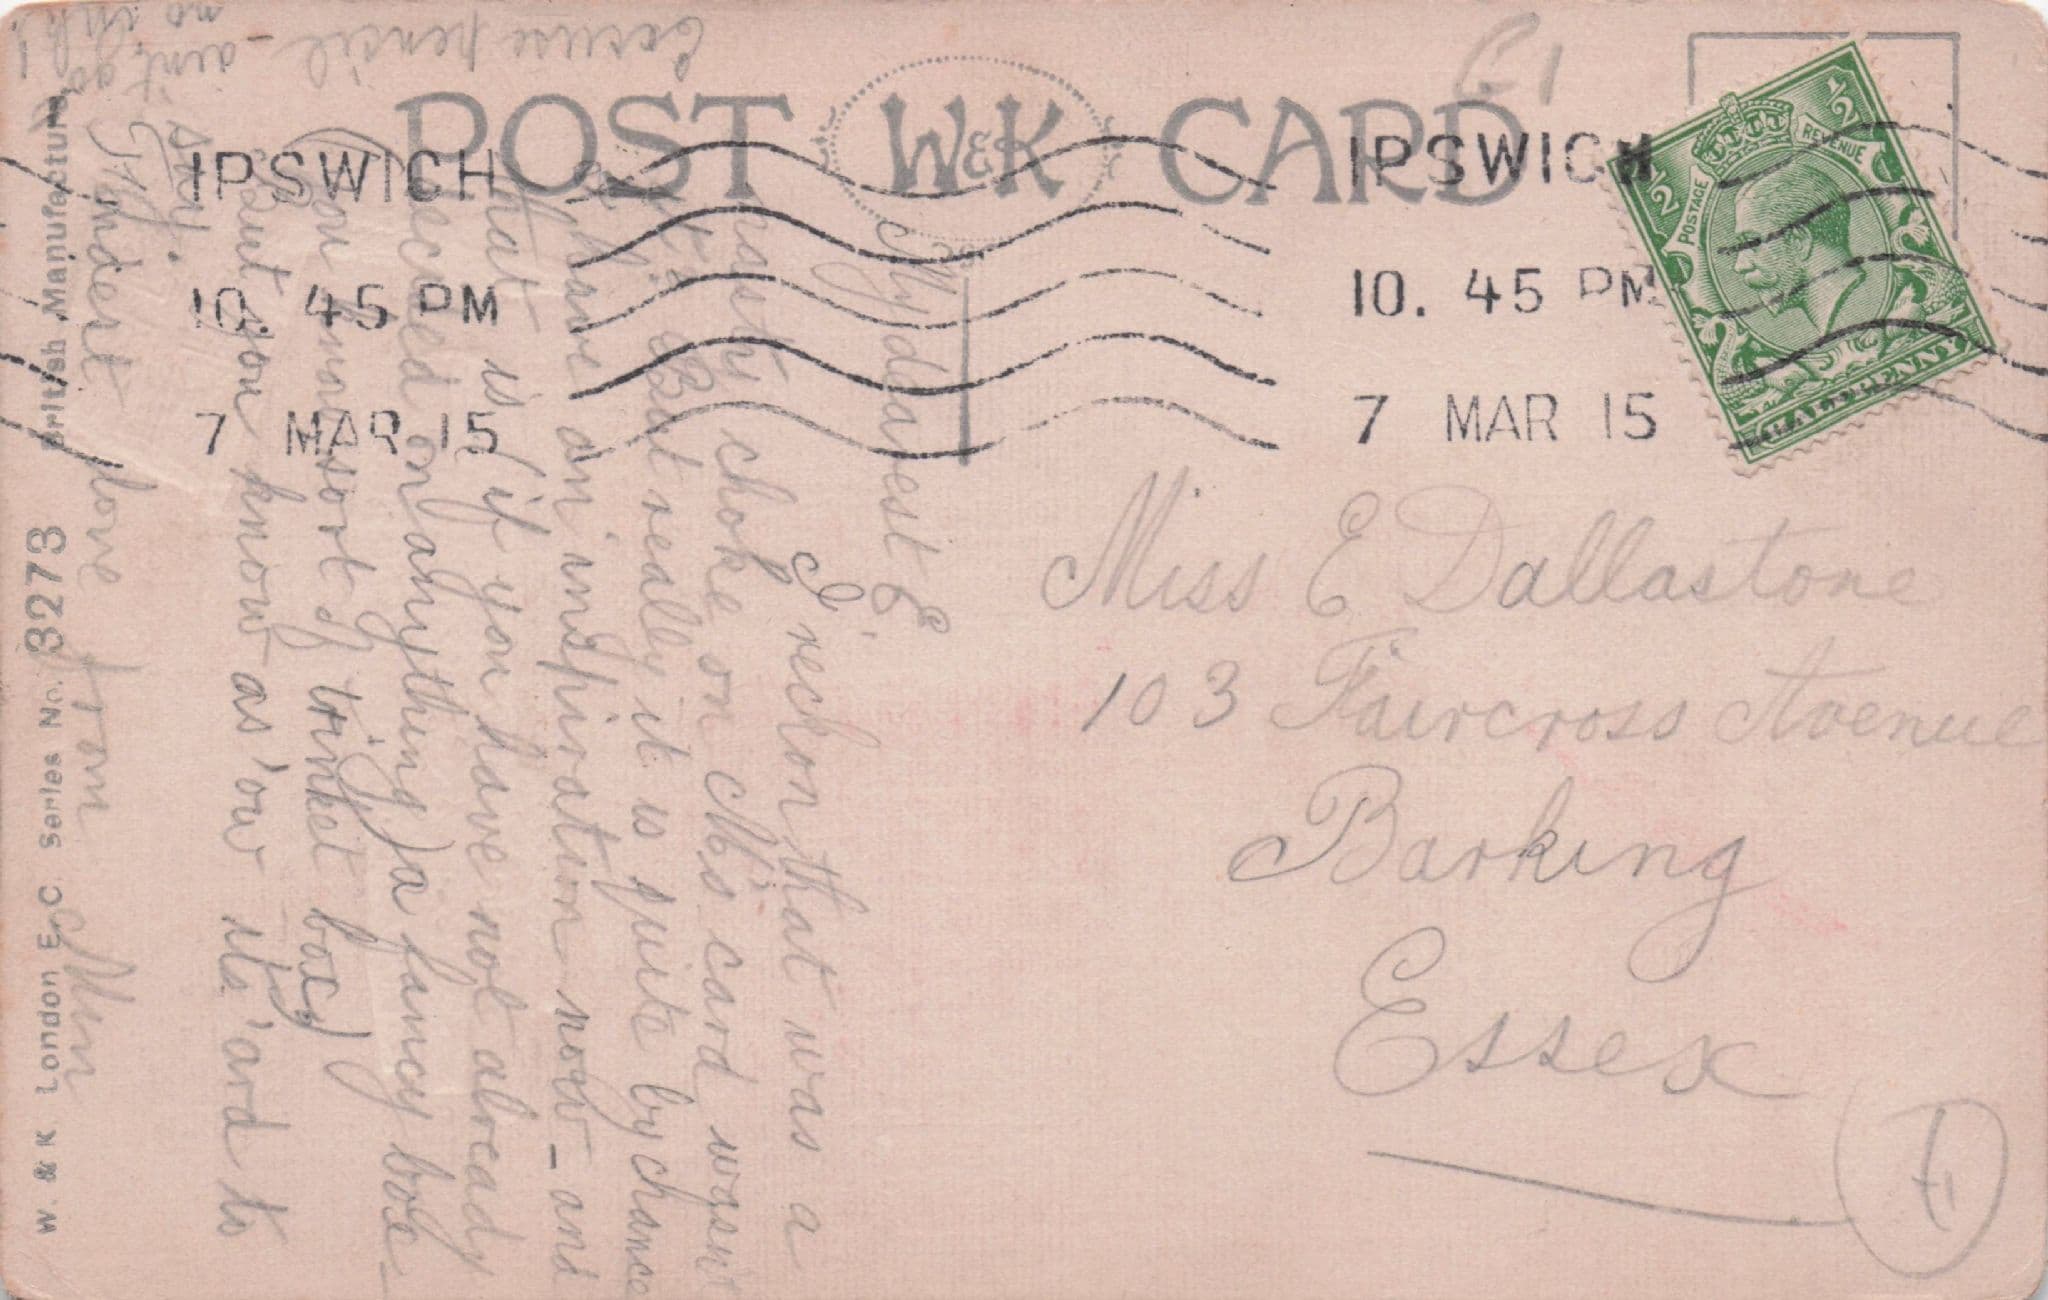 POST W&K CARD
IPSWICH
10. 45 PM
7 MAR 15
IPSWICH
10. 45 PM
7 MAR 15
½ ½
POSTAGE REVENUE
HALFPENNY
£1
Miss E Dallastone
103 Faircross Avenue
Barking
Essex
My dearest E
I reckon that was a
nasty choke on M's card wasnt
it? But really it is quite by chance
I have an inspiration now - and
that is (if you have not already
decided on anything) a fancy box -
(you know sort of trinket box)
But you know as 'ow its 'ard to
say.
Fondest love from
Win
Excuse pencil - aint got
no ink!
W. & K. London E.C. Series No. 3273 British Manufacture